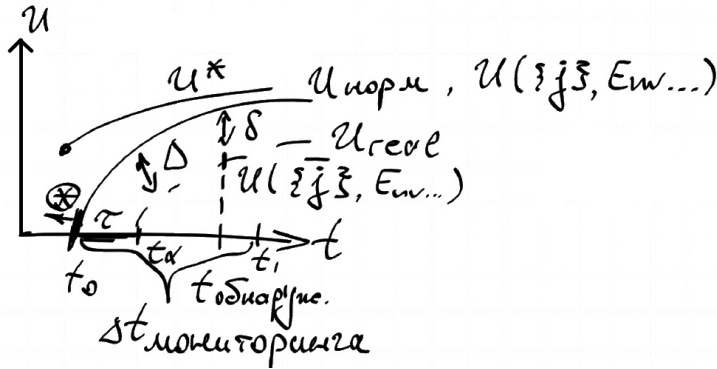 U
U* Uнорм, U({j}, Env...)
Δ δ — Ureal
U({j̄}, Env...)
⊛ τ
t₀ tα t₁ t
tобнаруж.
Δtмониторинга